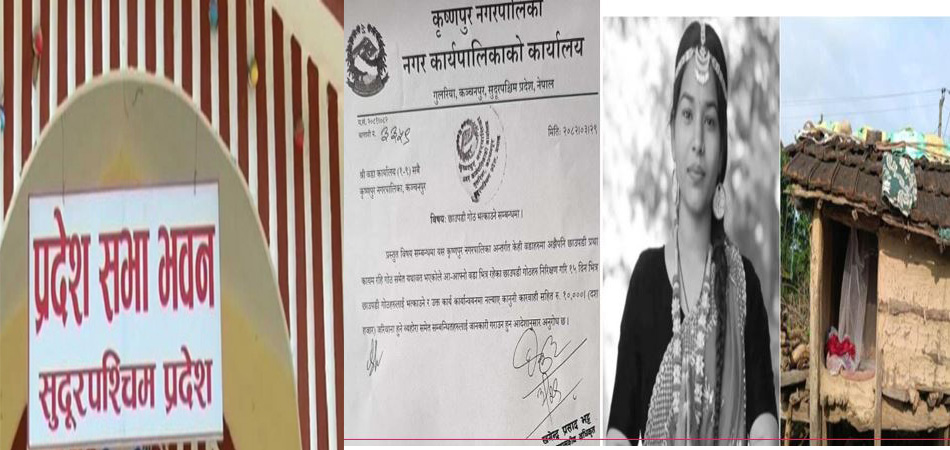 प्रदेश सभा भवन
सुदूरपश्चिम प्रदेश
कृष्णपुर नगरपालिका
नगर कार्यपालिकाको कार्यालय
गुलरिया, कञ्चनपुर, सुदूरपश्चिम प्रदेश, नेपाल
मिति: २०८२।०३।२९
श्री वडा कार्यालय (१-९) सबै
कृष्णपुर नगरपालिका, कञ्चनपुर
विषय: छाउपडी गोठ भत्काउने सम्बन्धमा।
प्रस्तुत विषय सम्बन्धमा यस कृष्णपुर नगरपालिका अन्तर्गत केही वडाहरुमा अझैपनि छाउपडी प्रथा
कायम रहि गोठ समेत यथावत भएकोले आ-आफ्नो वडा भित्र रहेका छाउपडी गोठहरु निरिक्षण गरि १५ दिन भित्र
छाउपडी गोठहरुलाई भत्काउने र उक्त कार्य कार्यान्वयनमा नल्याए कानुनी कारवाही सहित रु. १०,०००। (दश
हजार) जरिवाना हुने व्यहोरा समेत सम्बन्धितहरुलाई जानकारी गराउन हुन आदेशानुसार अनुरोध छ।
खगेन्द्र प्रसाद भट्ट